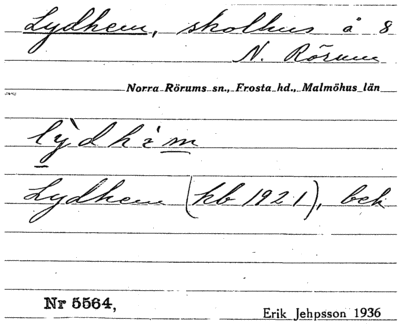 Lydhem, skolhus å 8
N. Rörum
Norra Rörums sn., Frosta hd., Malmöhus län
lỳdhèm
Lydhem (kb 1921), bek
Nr 5564,
Erik Jehpsson 1936